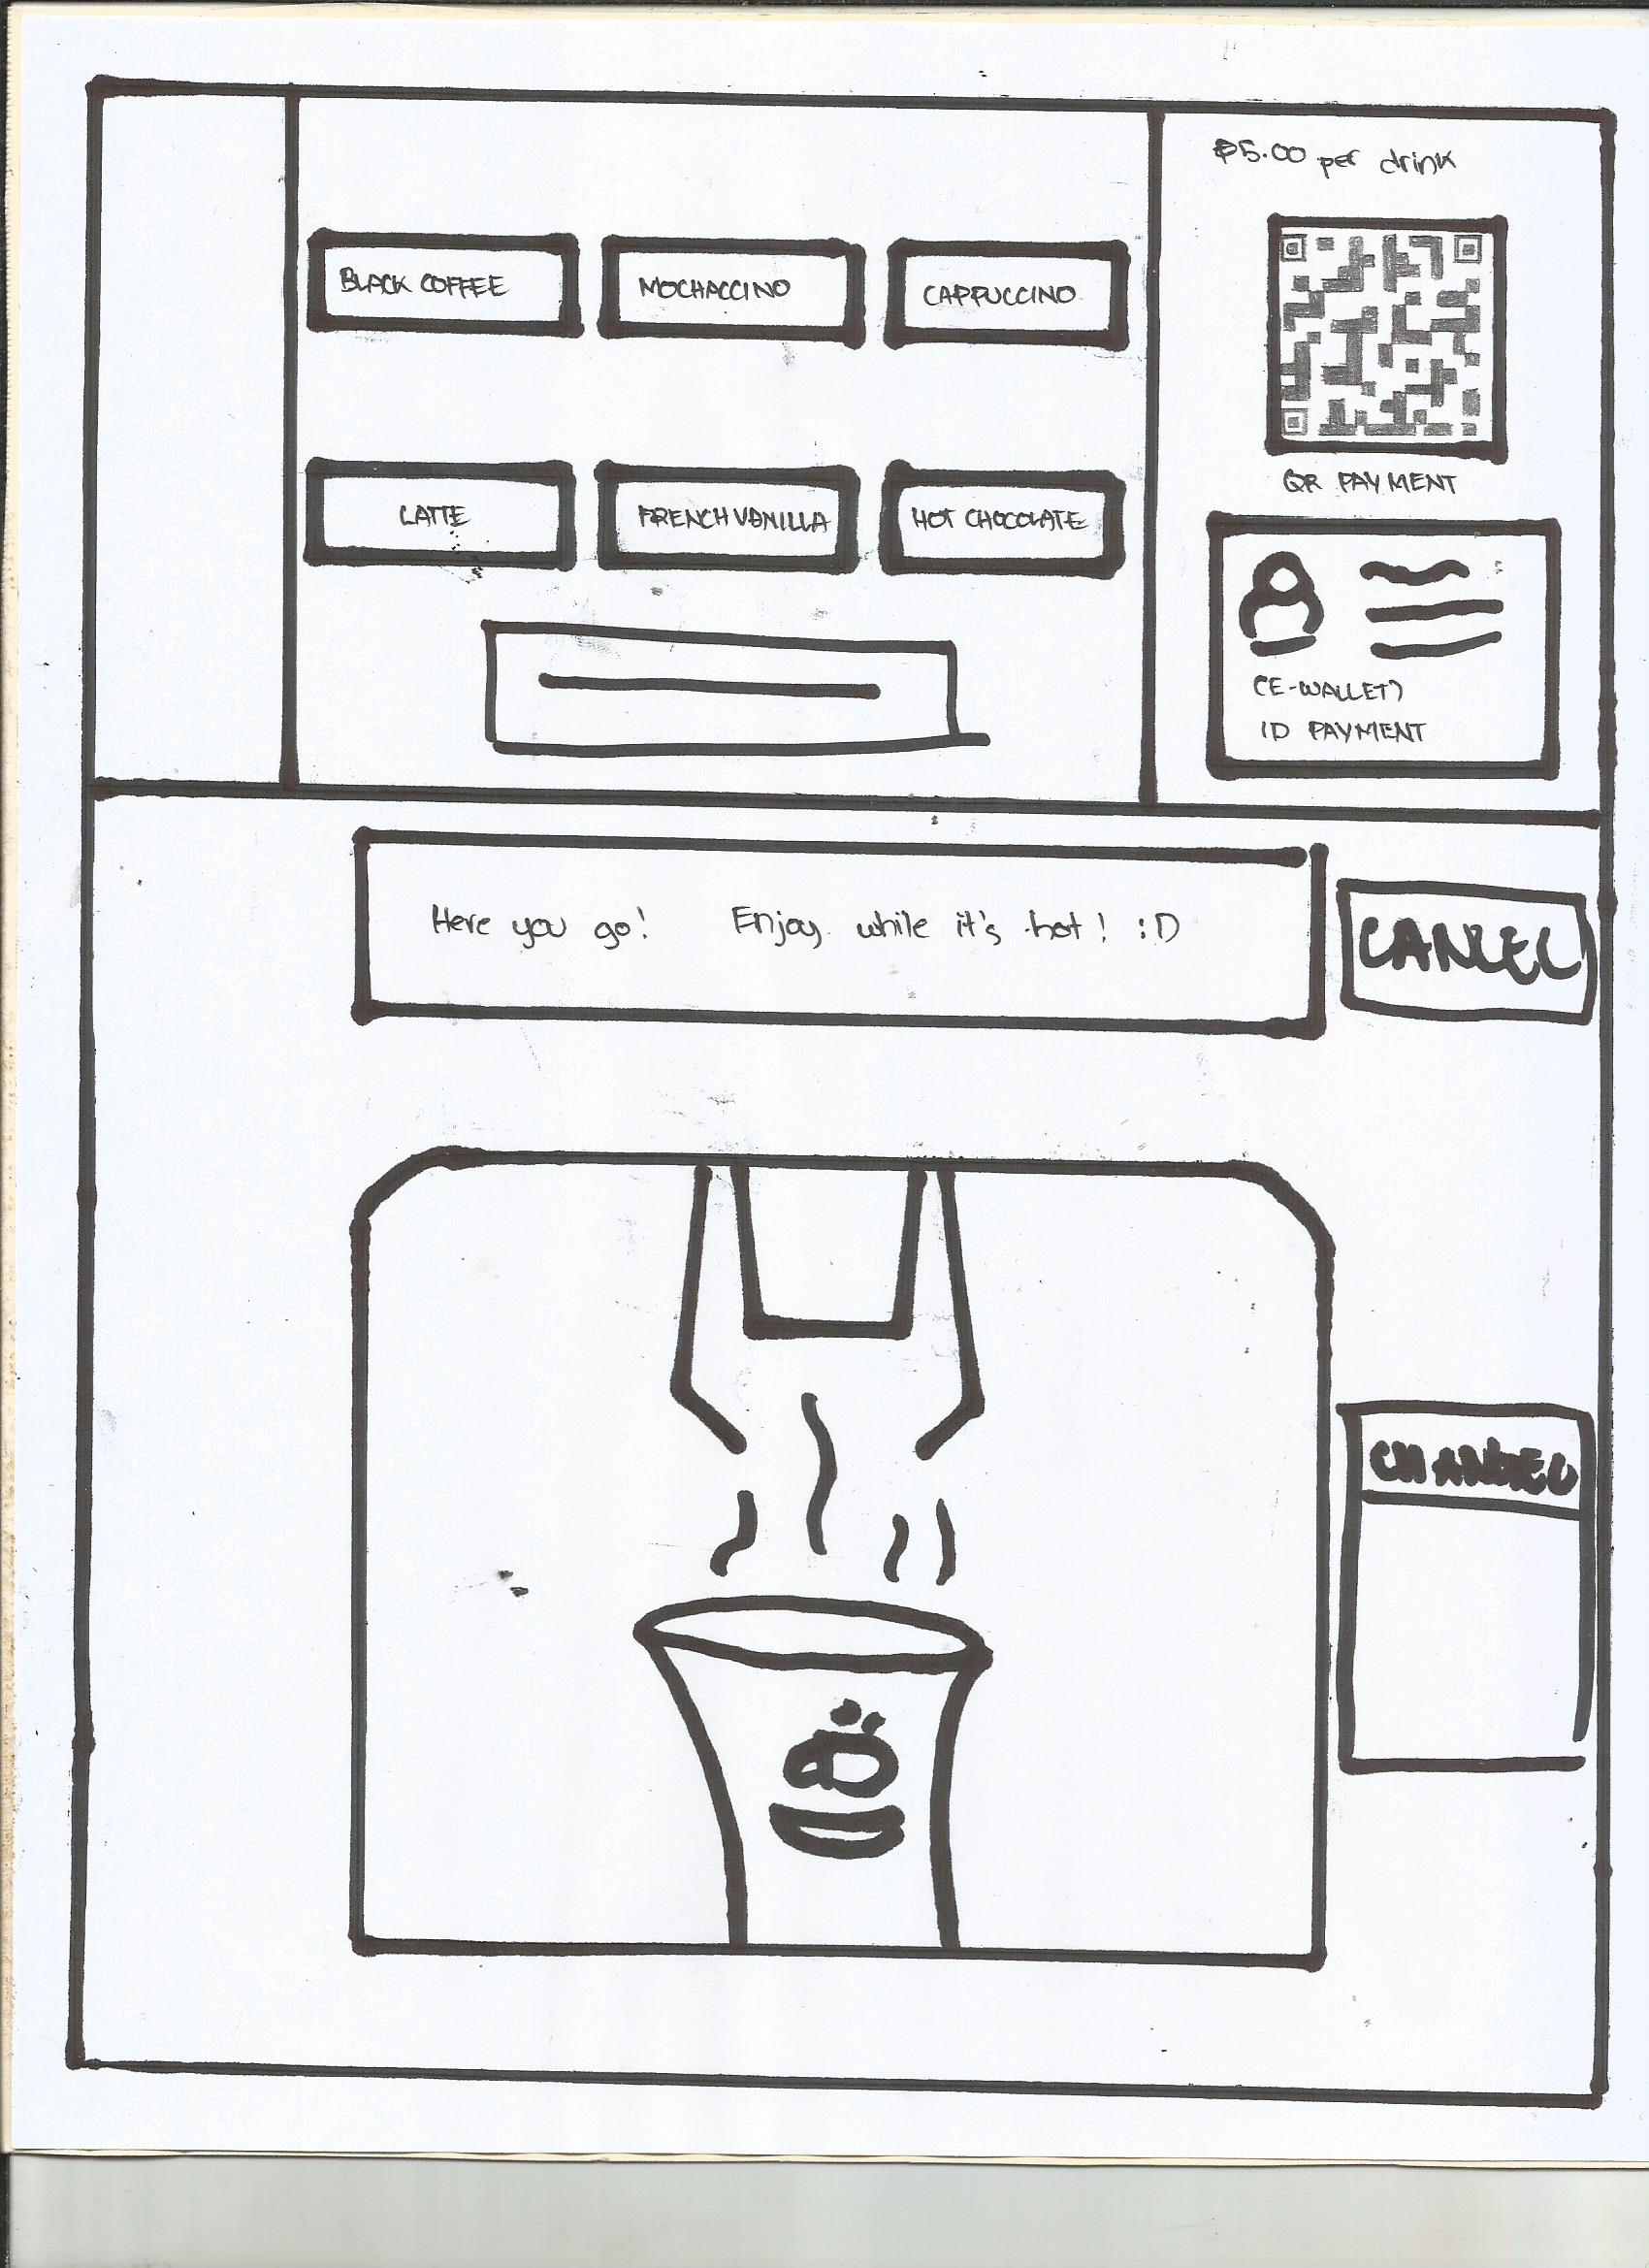 ₱5.00 per drink
BLACK COFFEE
MOCHACCINO
CAPPUCCINO
QR PAYMENT
LATTE
FRENCH VANILLA
HOT CHOCOLATE
(E-WALLET)
ID PAYMENT
Here you go! Enjoy while it's hot! :D
CANCEL